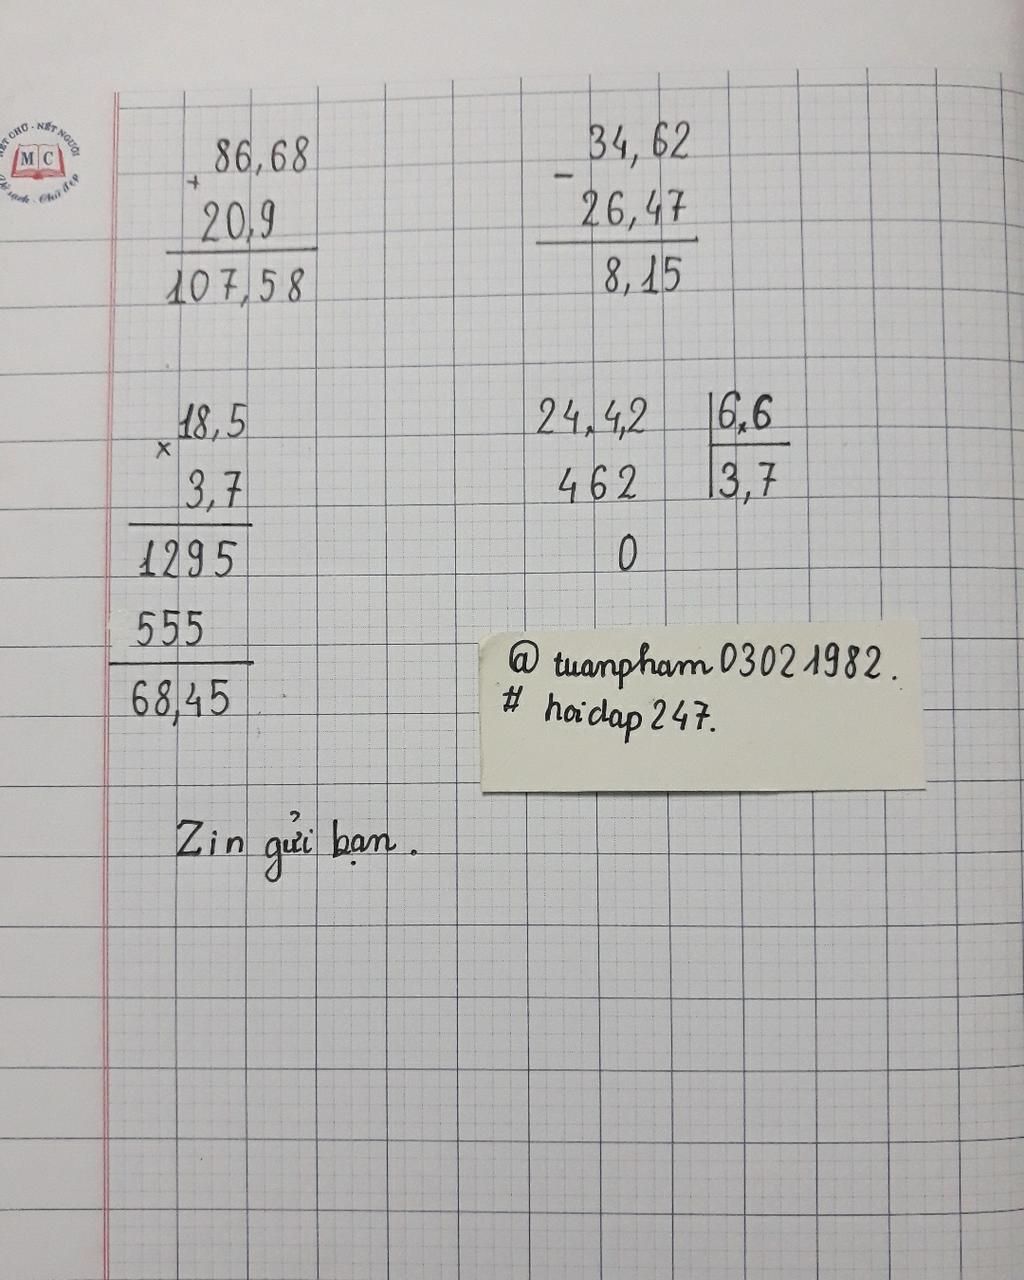 NÉT CHỮ - NẾT NGƯỜI
MC
86,68
+
20,9
107,58
34,62
-
26,47
8,15
18,5
x
3,7
1295
555
68,45
24,4,2 6,6
462 3,7
0
@ tuanpham03021982.
# hoidap247.
Zin gửi bạn.